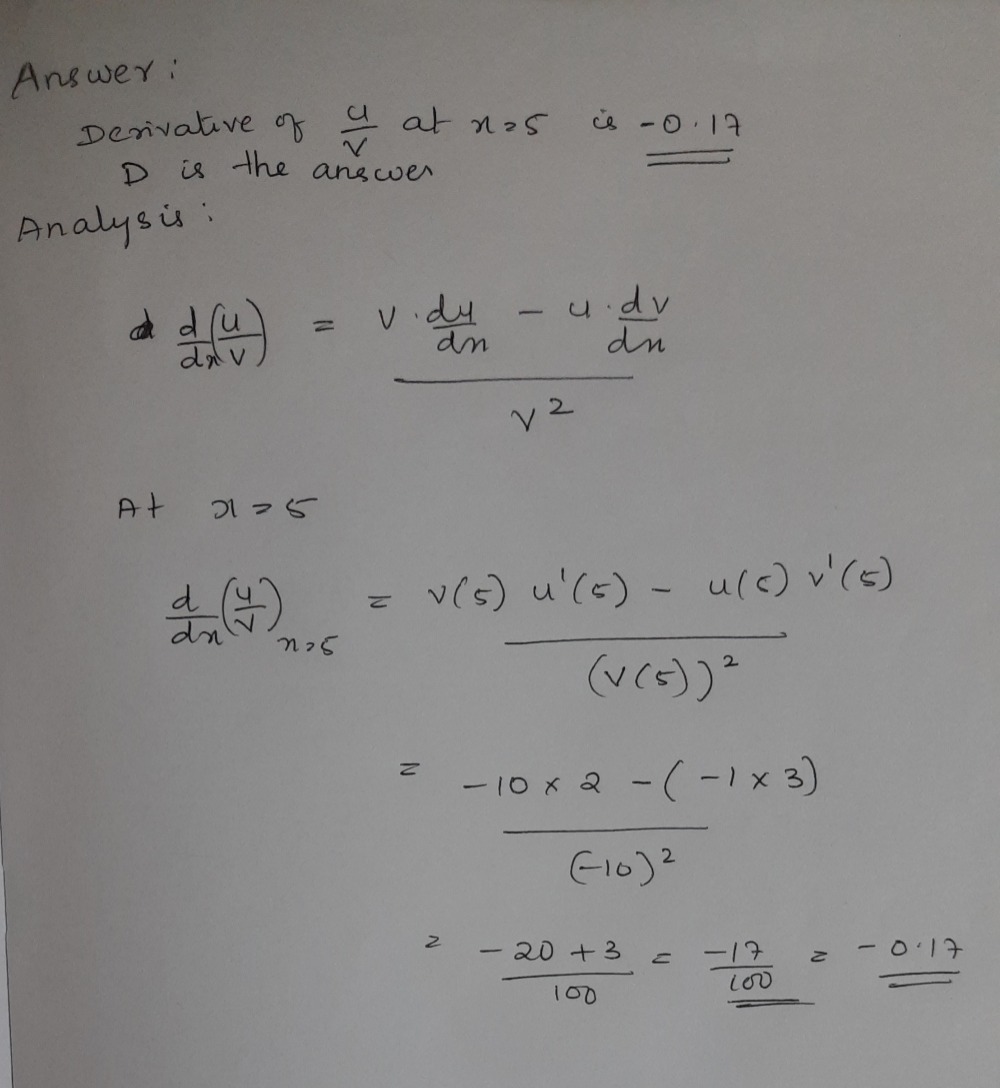 Answer:
Derivative of u/v at x=5 is -0.17
D is the answer
Analysis:
d d/dx (u/v) = (v . du/dx - u . dv/dx) / v²
At x=5
d/dx (u/v) x=5 = (v(5) u'(5) - u(5) v'(5)) / (v(5))²
= (-10 × 2 - (-1 × 3)) / (-10)²
= (-20 + 3) / 100 = -17/100 = -0.17